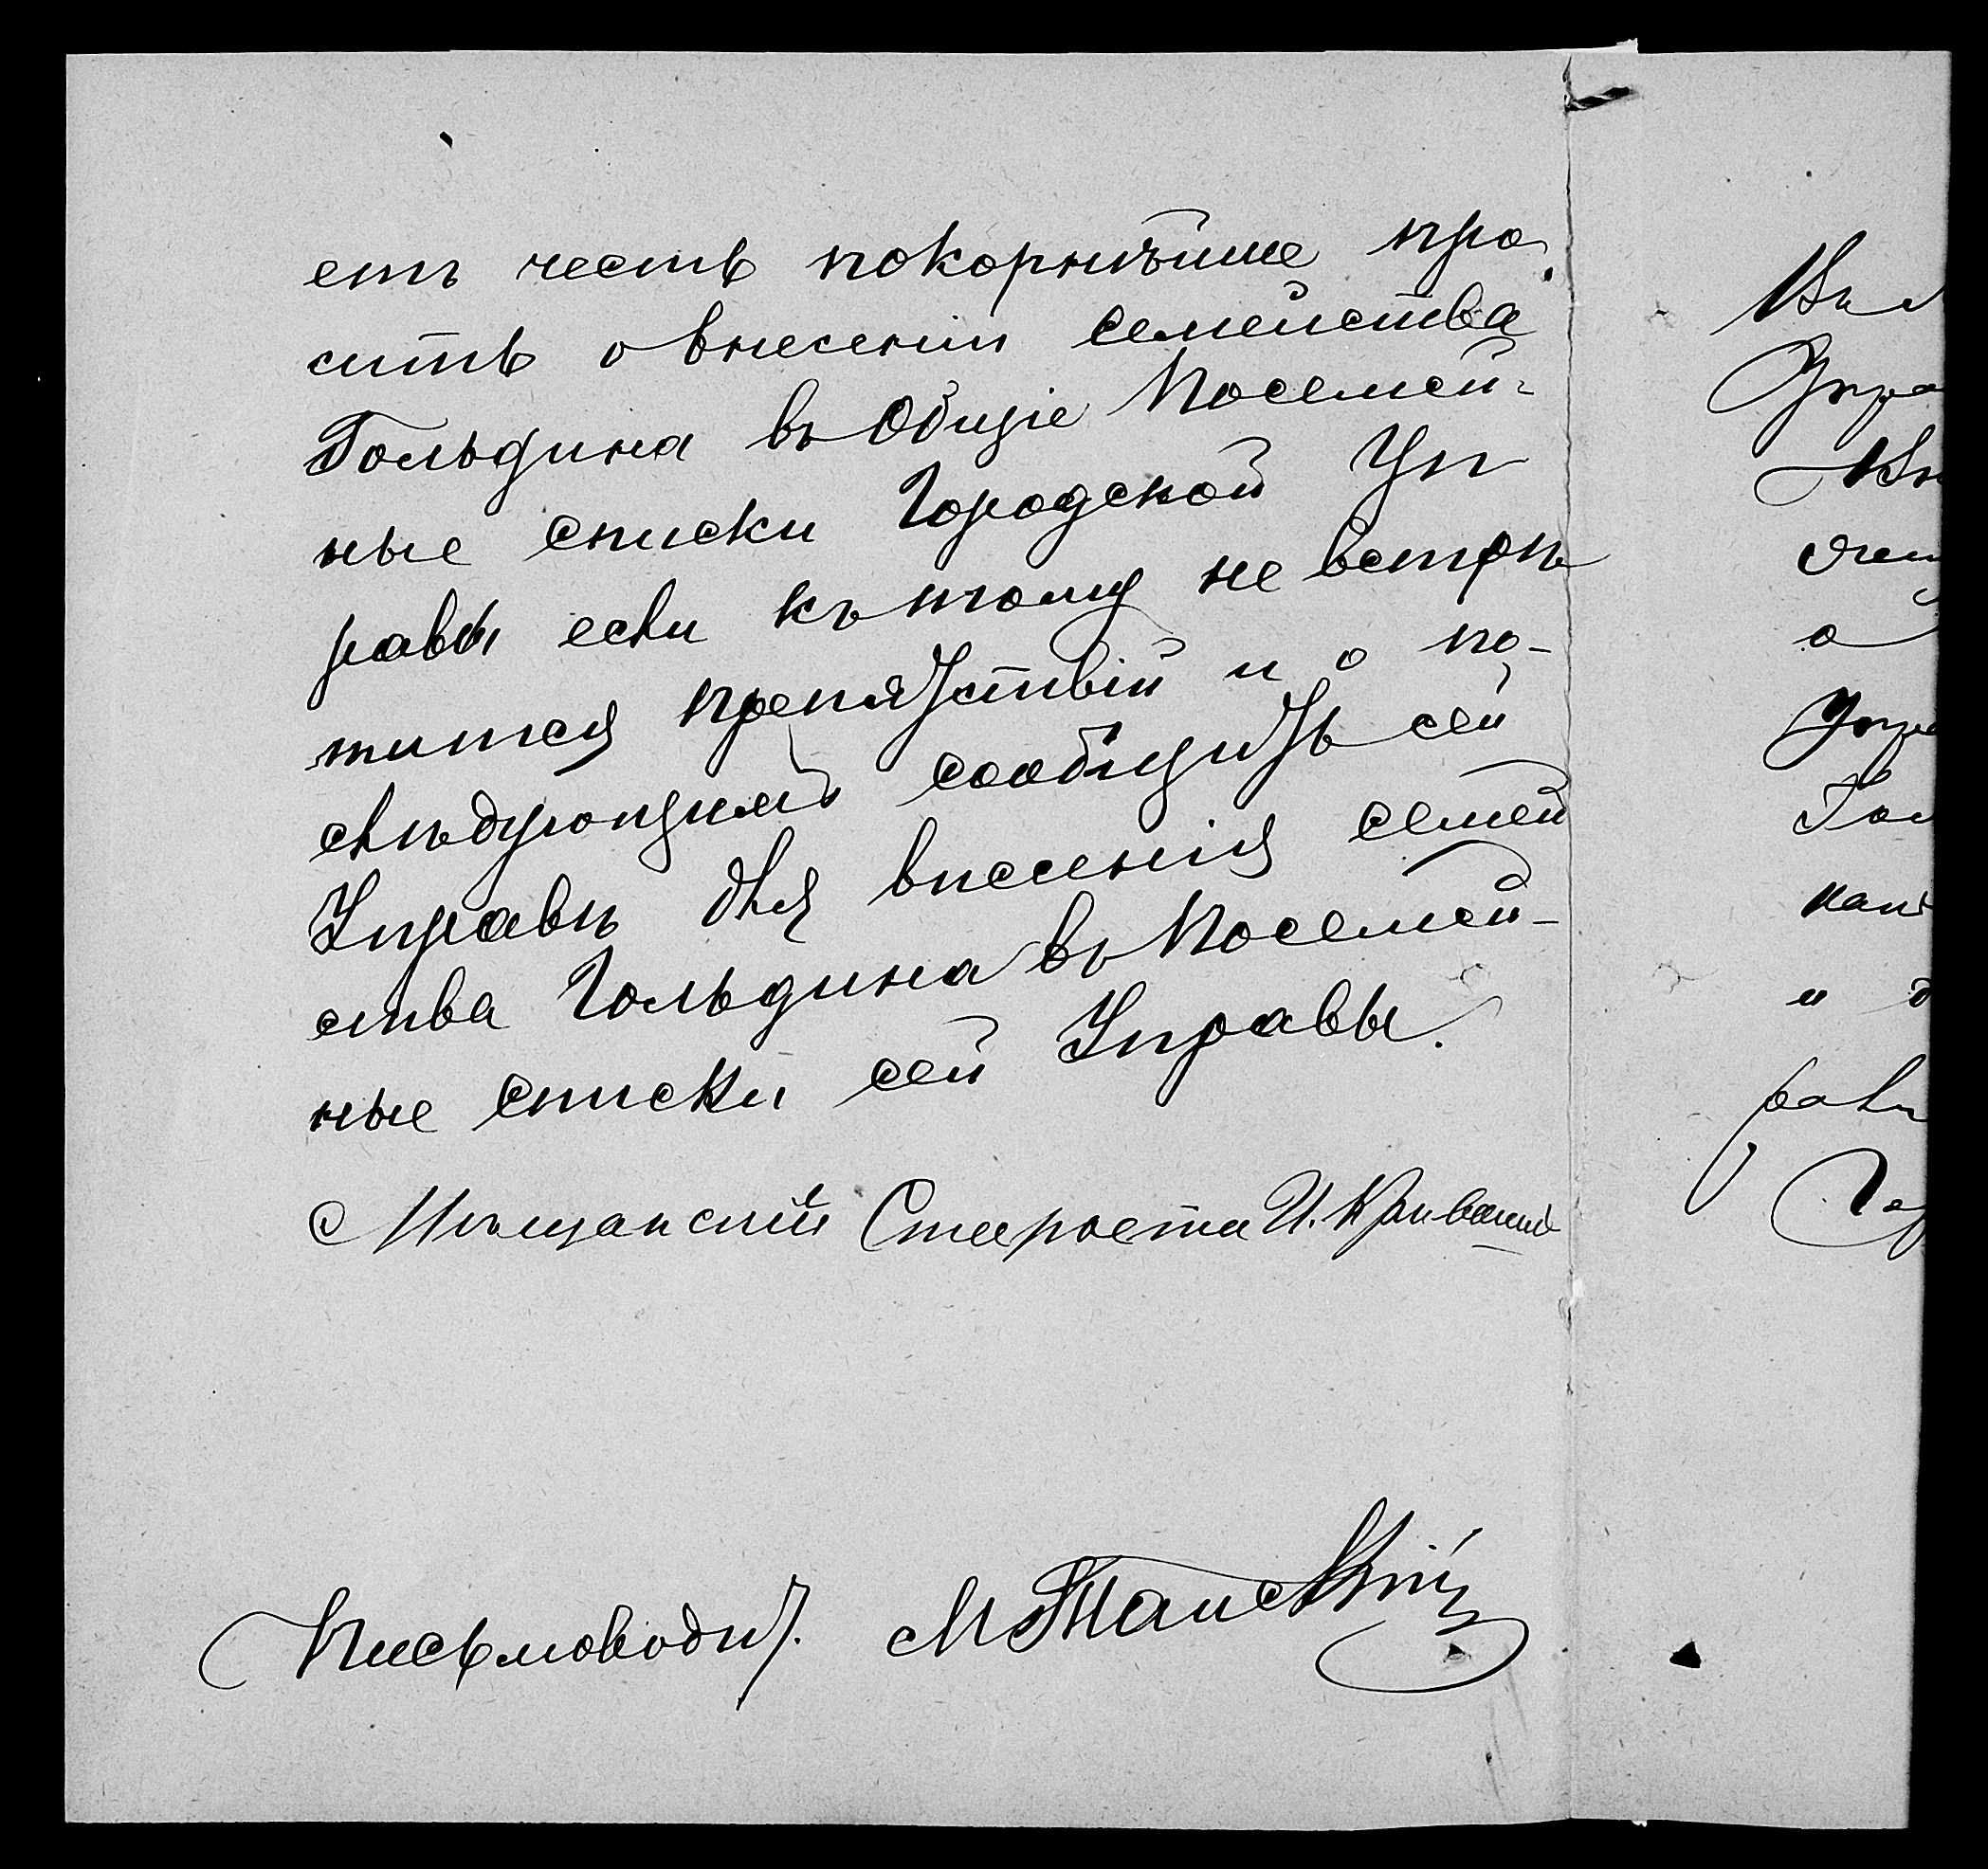 етъ честь покорнѣйше про-
сить о внесеніи семейства
Гольдина въ Общіе Посемей-
ные списки Городской Уп
равы если къ тому не встрѣ
тится препятствій и о по-
слѣдующимъ сообщить сей
Управѣ для внесенія семей
ства Гольдина въ Посемей-
ные списки сей Управы.
Мѣщанскій Староста И.
Письмоводит. М
Упра
о
Упра
и